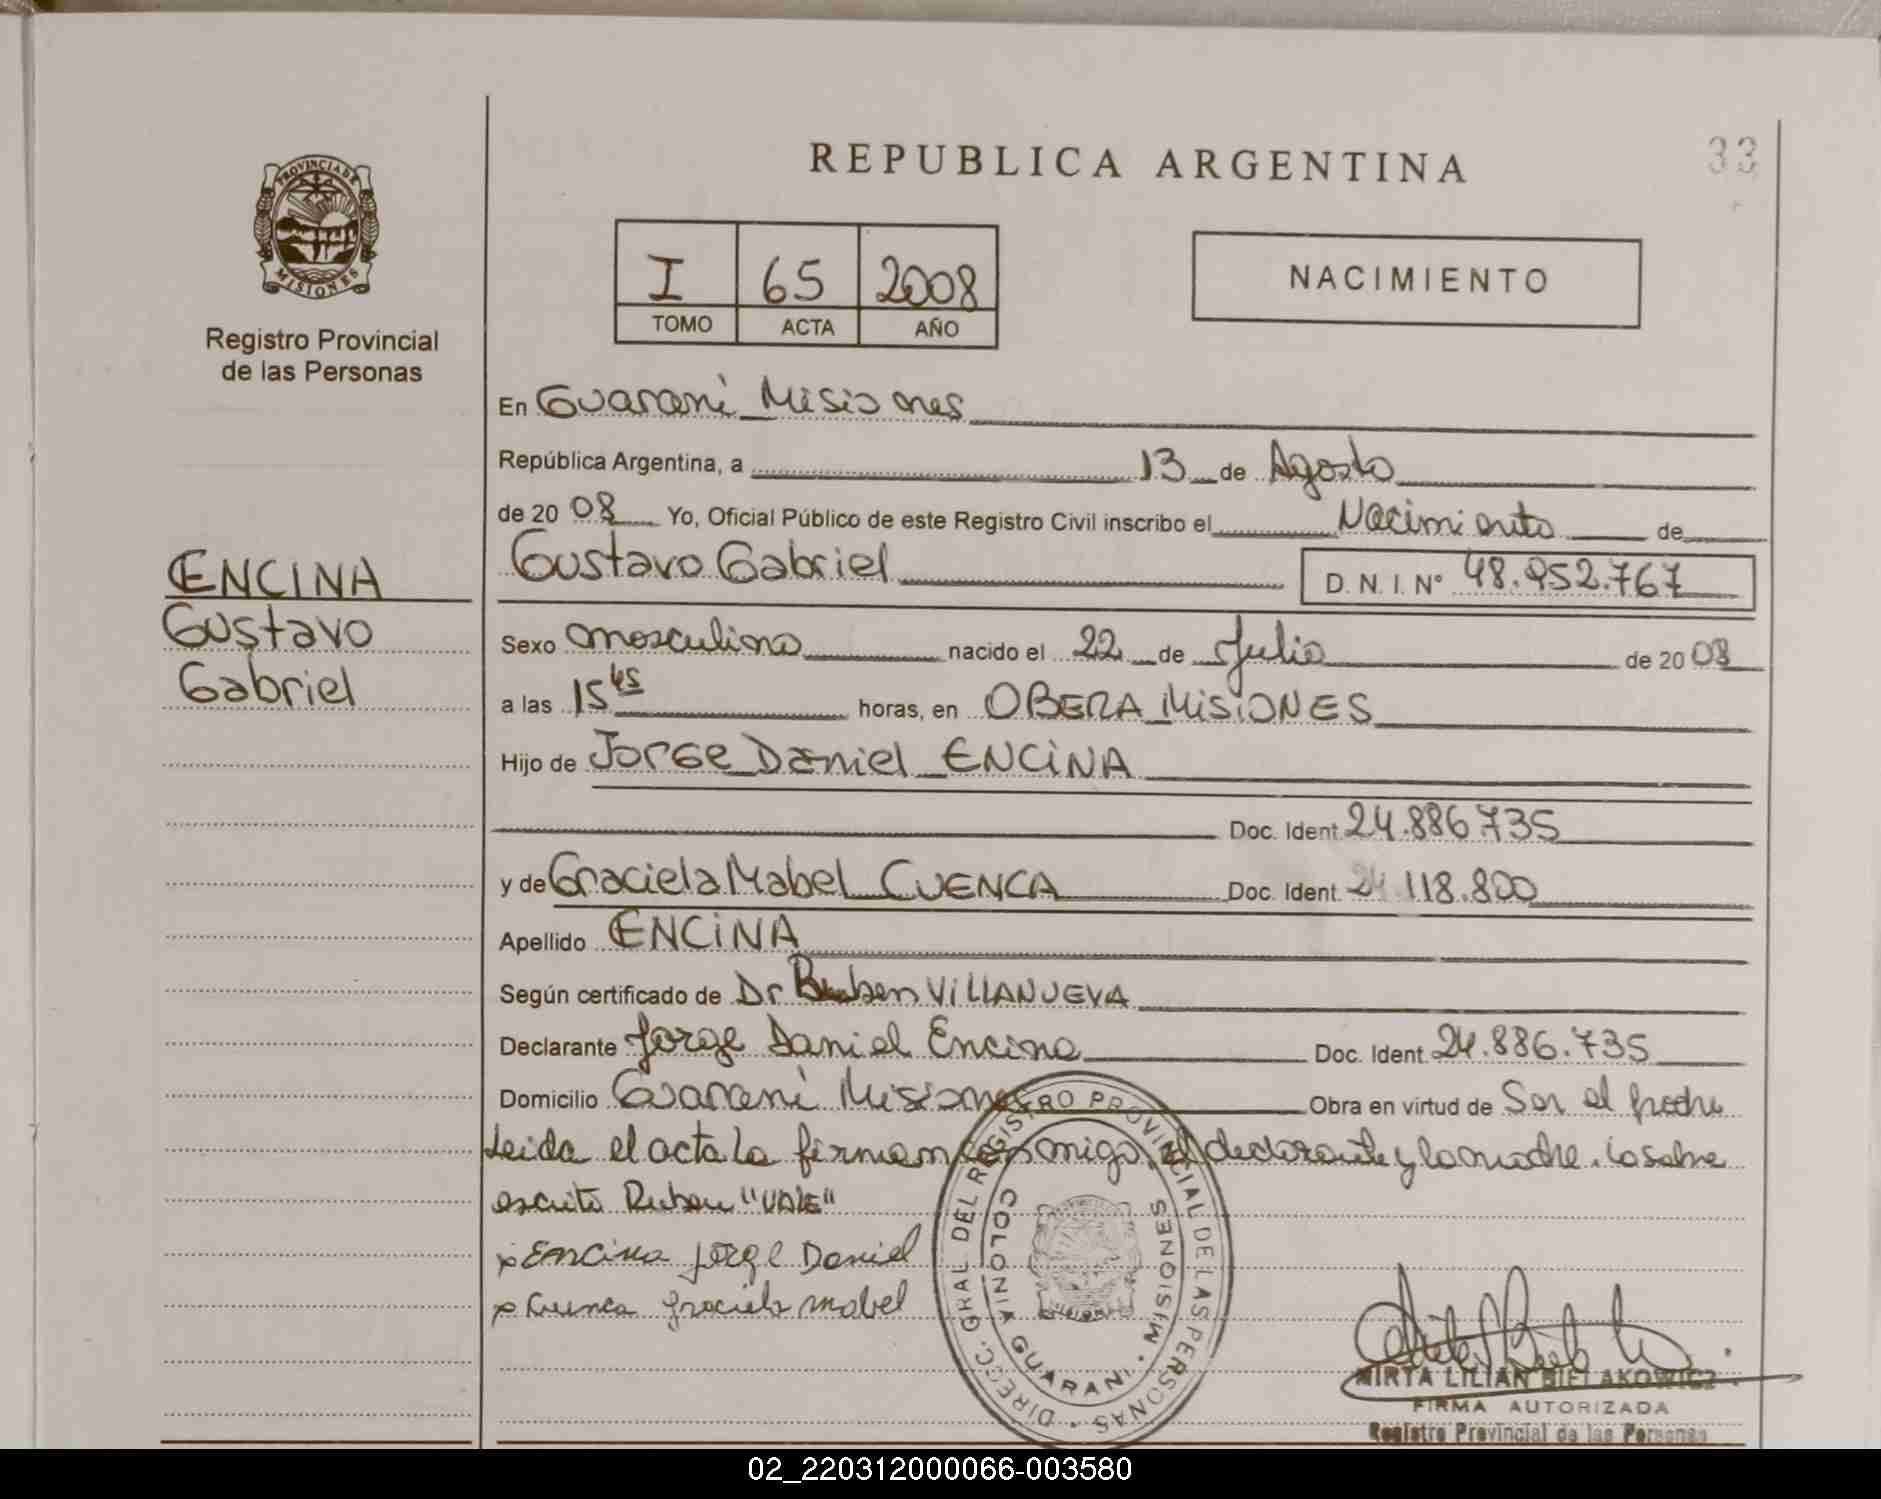 REPUBLICA ARGENTINA
33
PROVINCIA DE
MISIONES
Registro Provincial
de las Personas
I 65 2008
TOMO ACTA AÑO
NACIMIENTO
En Guaraní Misiones
República Argentina, a 13 de Agosto
de 2008 Yo, Oficial Público de este Registro Civil inscribo el Nacimiento de
Gustavo Gabriel D. N. I. Nº 48.952.767
ENCINA
Gustavo
Gabriel
Sexo masculino nacido el 22 de Julio de 2008
a las 15 45 horas, en OBERA MISIONES
Hijo de Jorge Daniel ENCINA
Doc. Ident. 24.886.735
y de Graciela Mabel CUENCA Doc. Ident. 24.118.800
Apellido ENCINA
Según certificado de Dr Ruben VILLANUEVA
Declarante Jorge Daniel Encina Doc. Ident. 24.886.735
Domicilio Guaraní Misiones Obra en virtud de Ser el padre
Leida el acta la firman conmigo el declarante y la madre. Lo sobre
escrito Ruben "VALE"
x Encina Jorge Daniel
x Cuenca Graciela mabel
DIRECC. GRAL. DEL REGISTRO PROVINCIAL DE LAS PERSONAS
COLONIA GUARANI - MISIONES
MIRTA LILIAN BIELAKOWICZ
FIRMA AUTORIZADA
Registro Provincial de las Personas
02_220312000066-003580